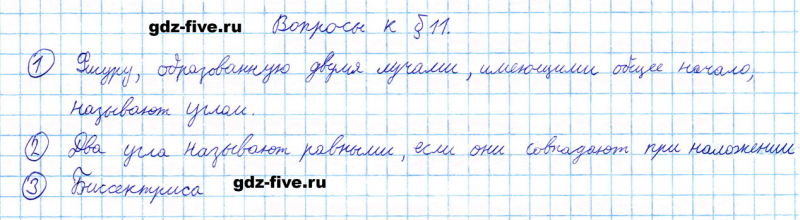 gdz-five.ru Вопросы к § 11.
1 Фигуру, образованную двумя лучами, имеющими общее начало,
называют углом.
2 Два угла называют равными, если они совпадают при наложении
3 Биссектриса gdz-five.ru